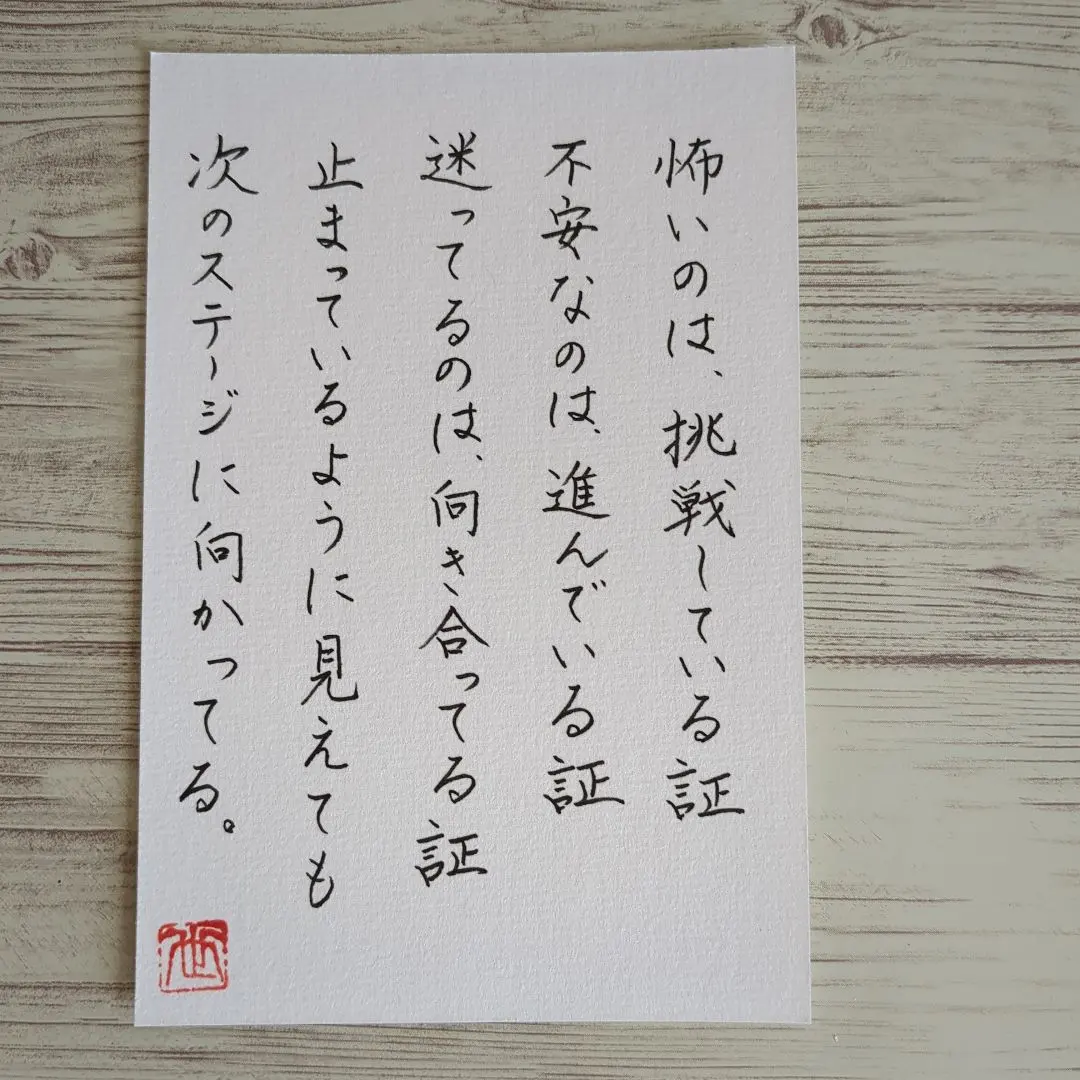 怖いのは、挑戦している証
不安なのは、進んでいる証
迷ってるのは、向き合ってる証
止まっているように見えても
次のステージに向かってる。